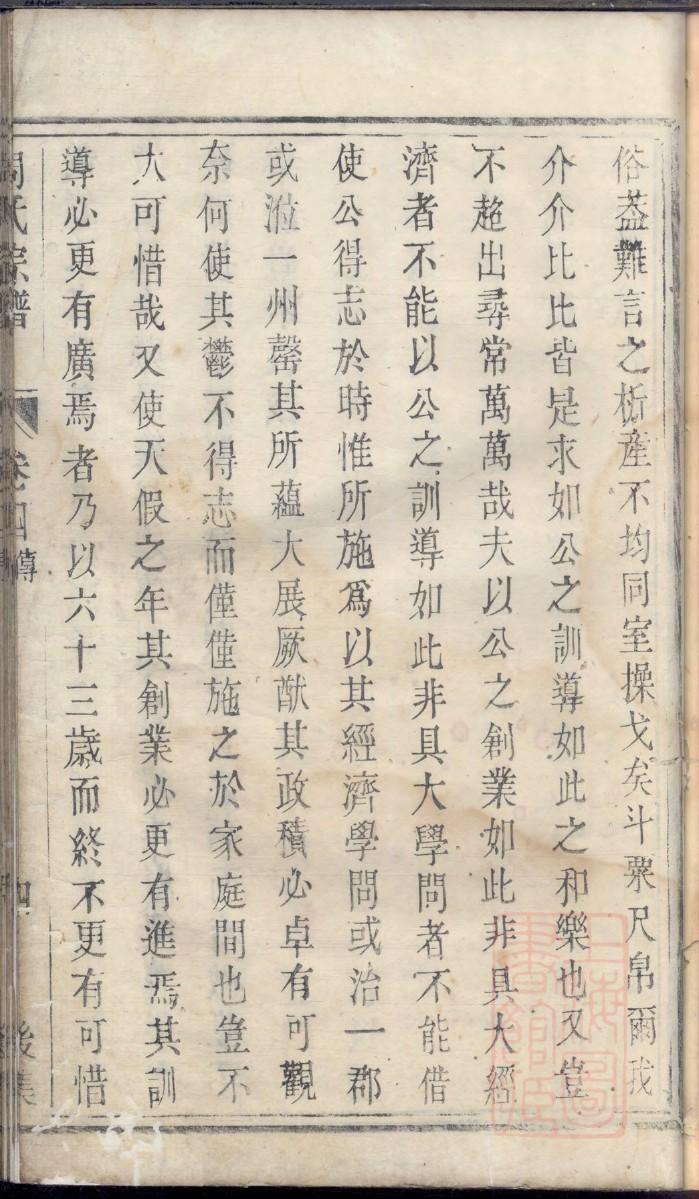 俗葢難言之析產不均同室操戈矣斗粟尺帛爾我
介介比比皆是求如公之訓導如此之和樂也又豈
不超出尋常萬萬哉夫以公之創業如此非具大經
濟者不能以公之訓導如此非具大學問者不能借
使公得志於時惟所施爲以其經濟學問或治一郡
或涖一州罄其所蘊大展厥猷其政積必卓有可觀
奈何使其鬱不得志而僅僅施之於家庭間也豈不
大可惜哉又使天假之年其創業必更有進焉其訓
導必更有廣焉者乃以六十三歲而終不更有可惜
周氏宗譜 卷四 傳 四
上海圖書館藏